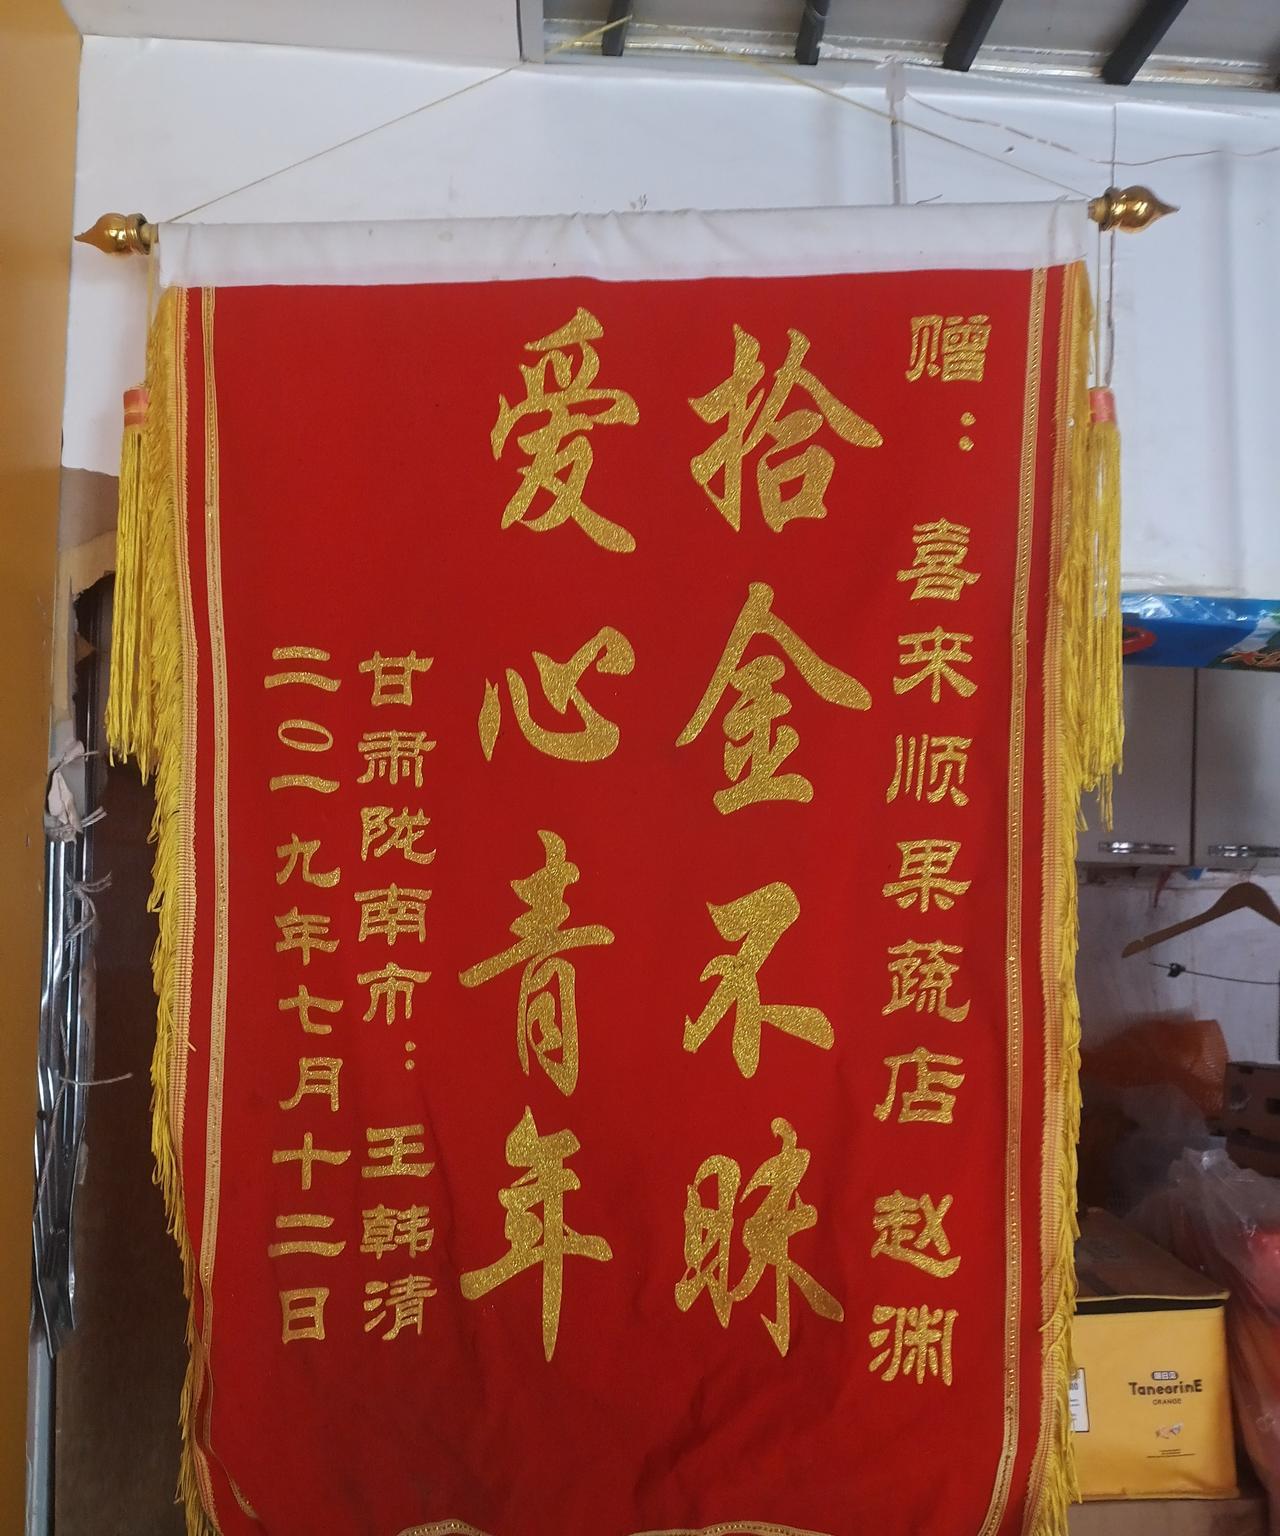 赠：喜来顺果蔬店 赵渊
拾金不昧
爱心青年
甘肃陇南市：王韩清
二〇一九年七月十二日
TangorinE
ORANGE